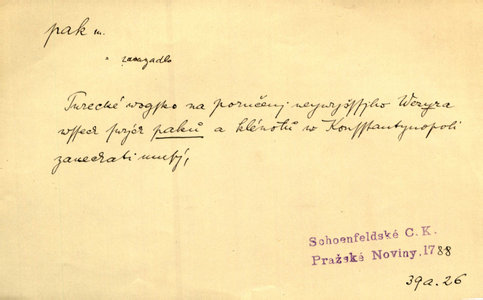 pak m.
" zavazadlo
Turecké wogsko na poručenj neywyšššjho Wezyra
wssech swých paků a klénotů w Konsstantynopoli
zanechati musý,
Schoenfeldské C. K.
Pražské Noviny, 1788
39a. 26